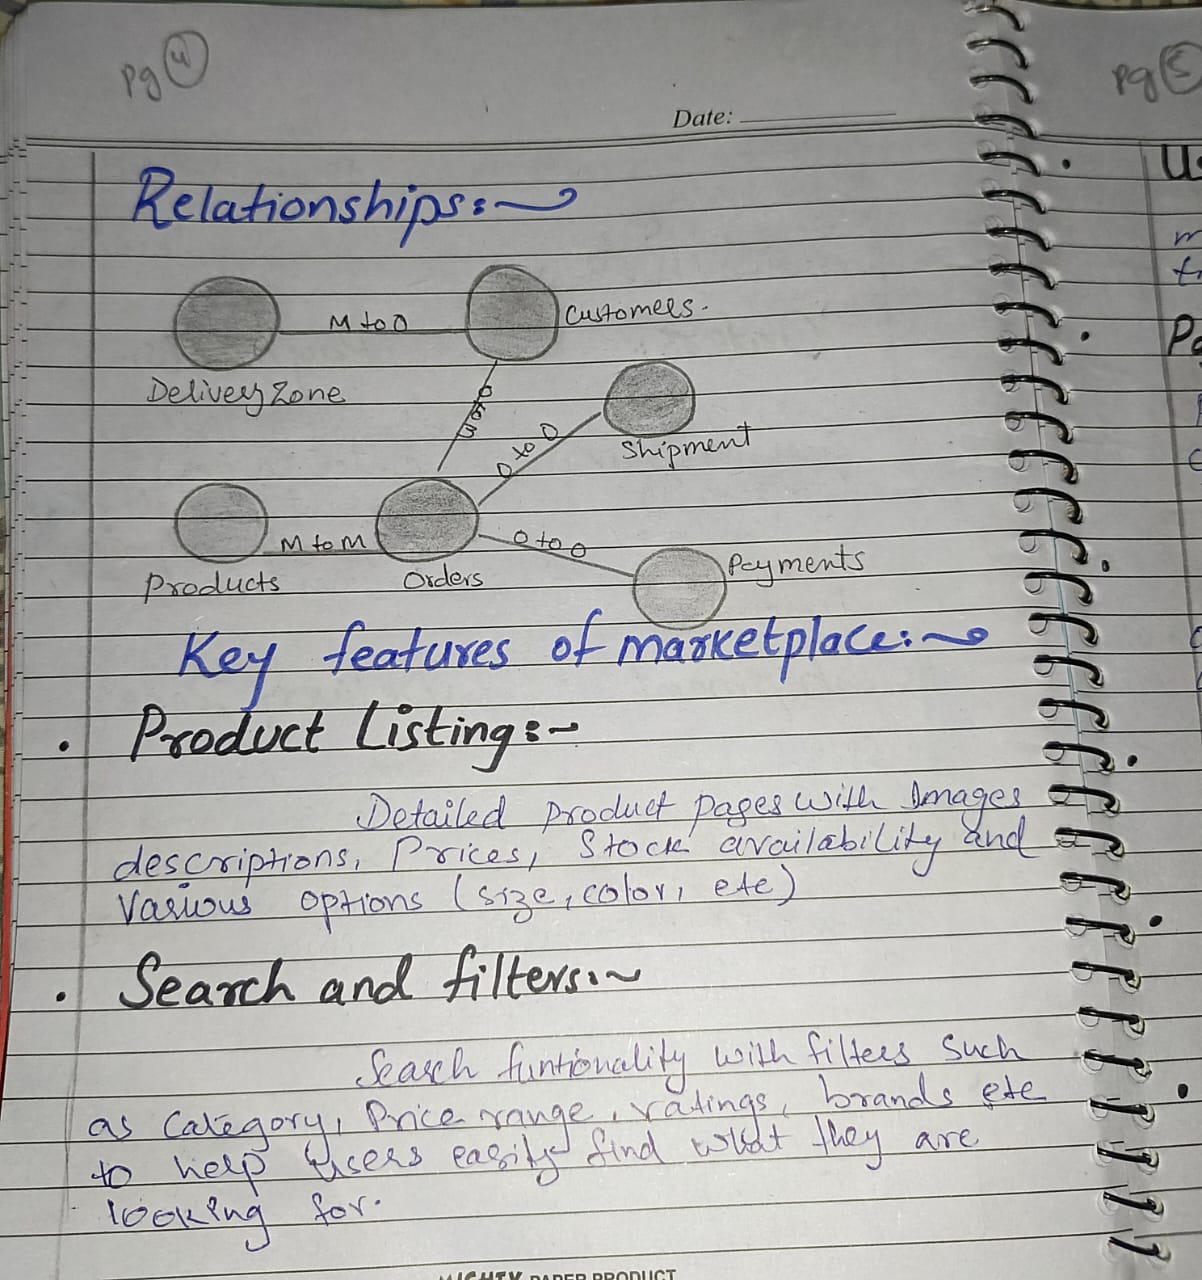 Pg 4
Pg 5
Date:
Relationships:~
M to O
Customers.
Delivery Zone
O to M
O to O
Shipment
M to M
O to O
Payments
Products
Orders
Key features of marketplace:~
Product Listing:~
Detailed product pages with Images
descriptions, Prices, Stock availability and
Various options (size, color, etc)
Search and filters:~
Search funtionality with filters such
as Category, Price range, ratings, brands etc
to help users easily find what they are
looking for.
PAPER PRODUCT